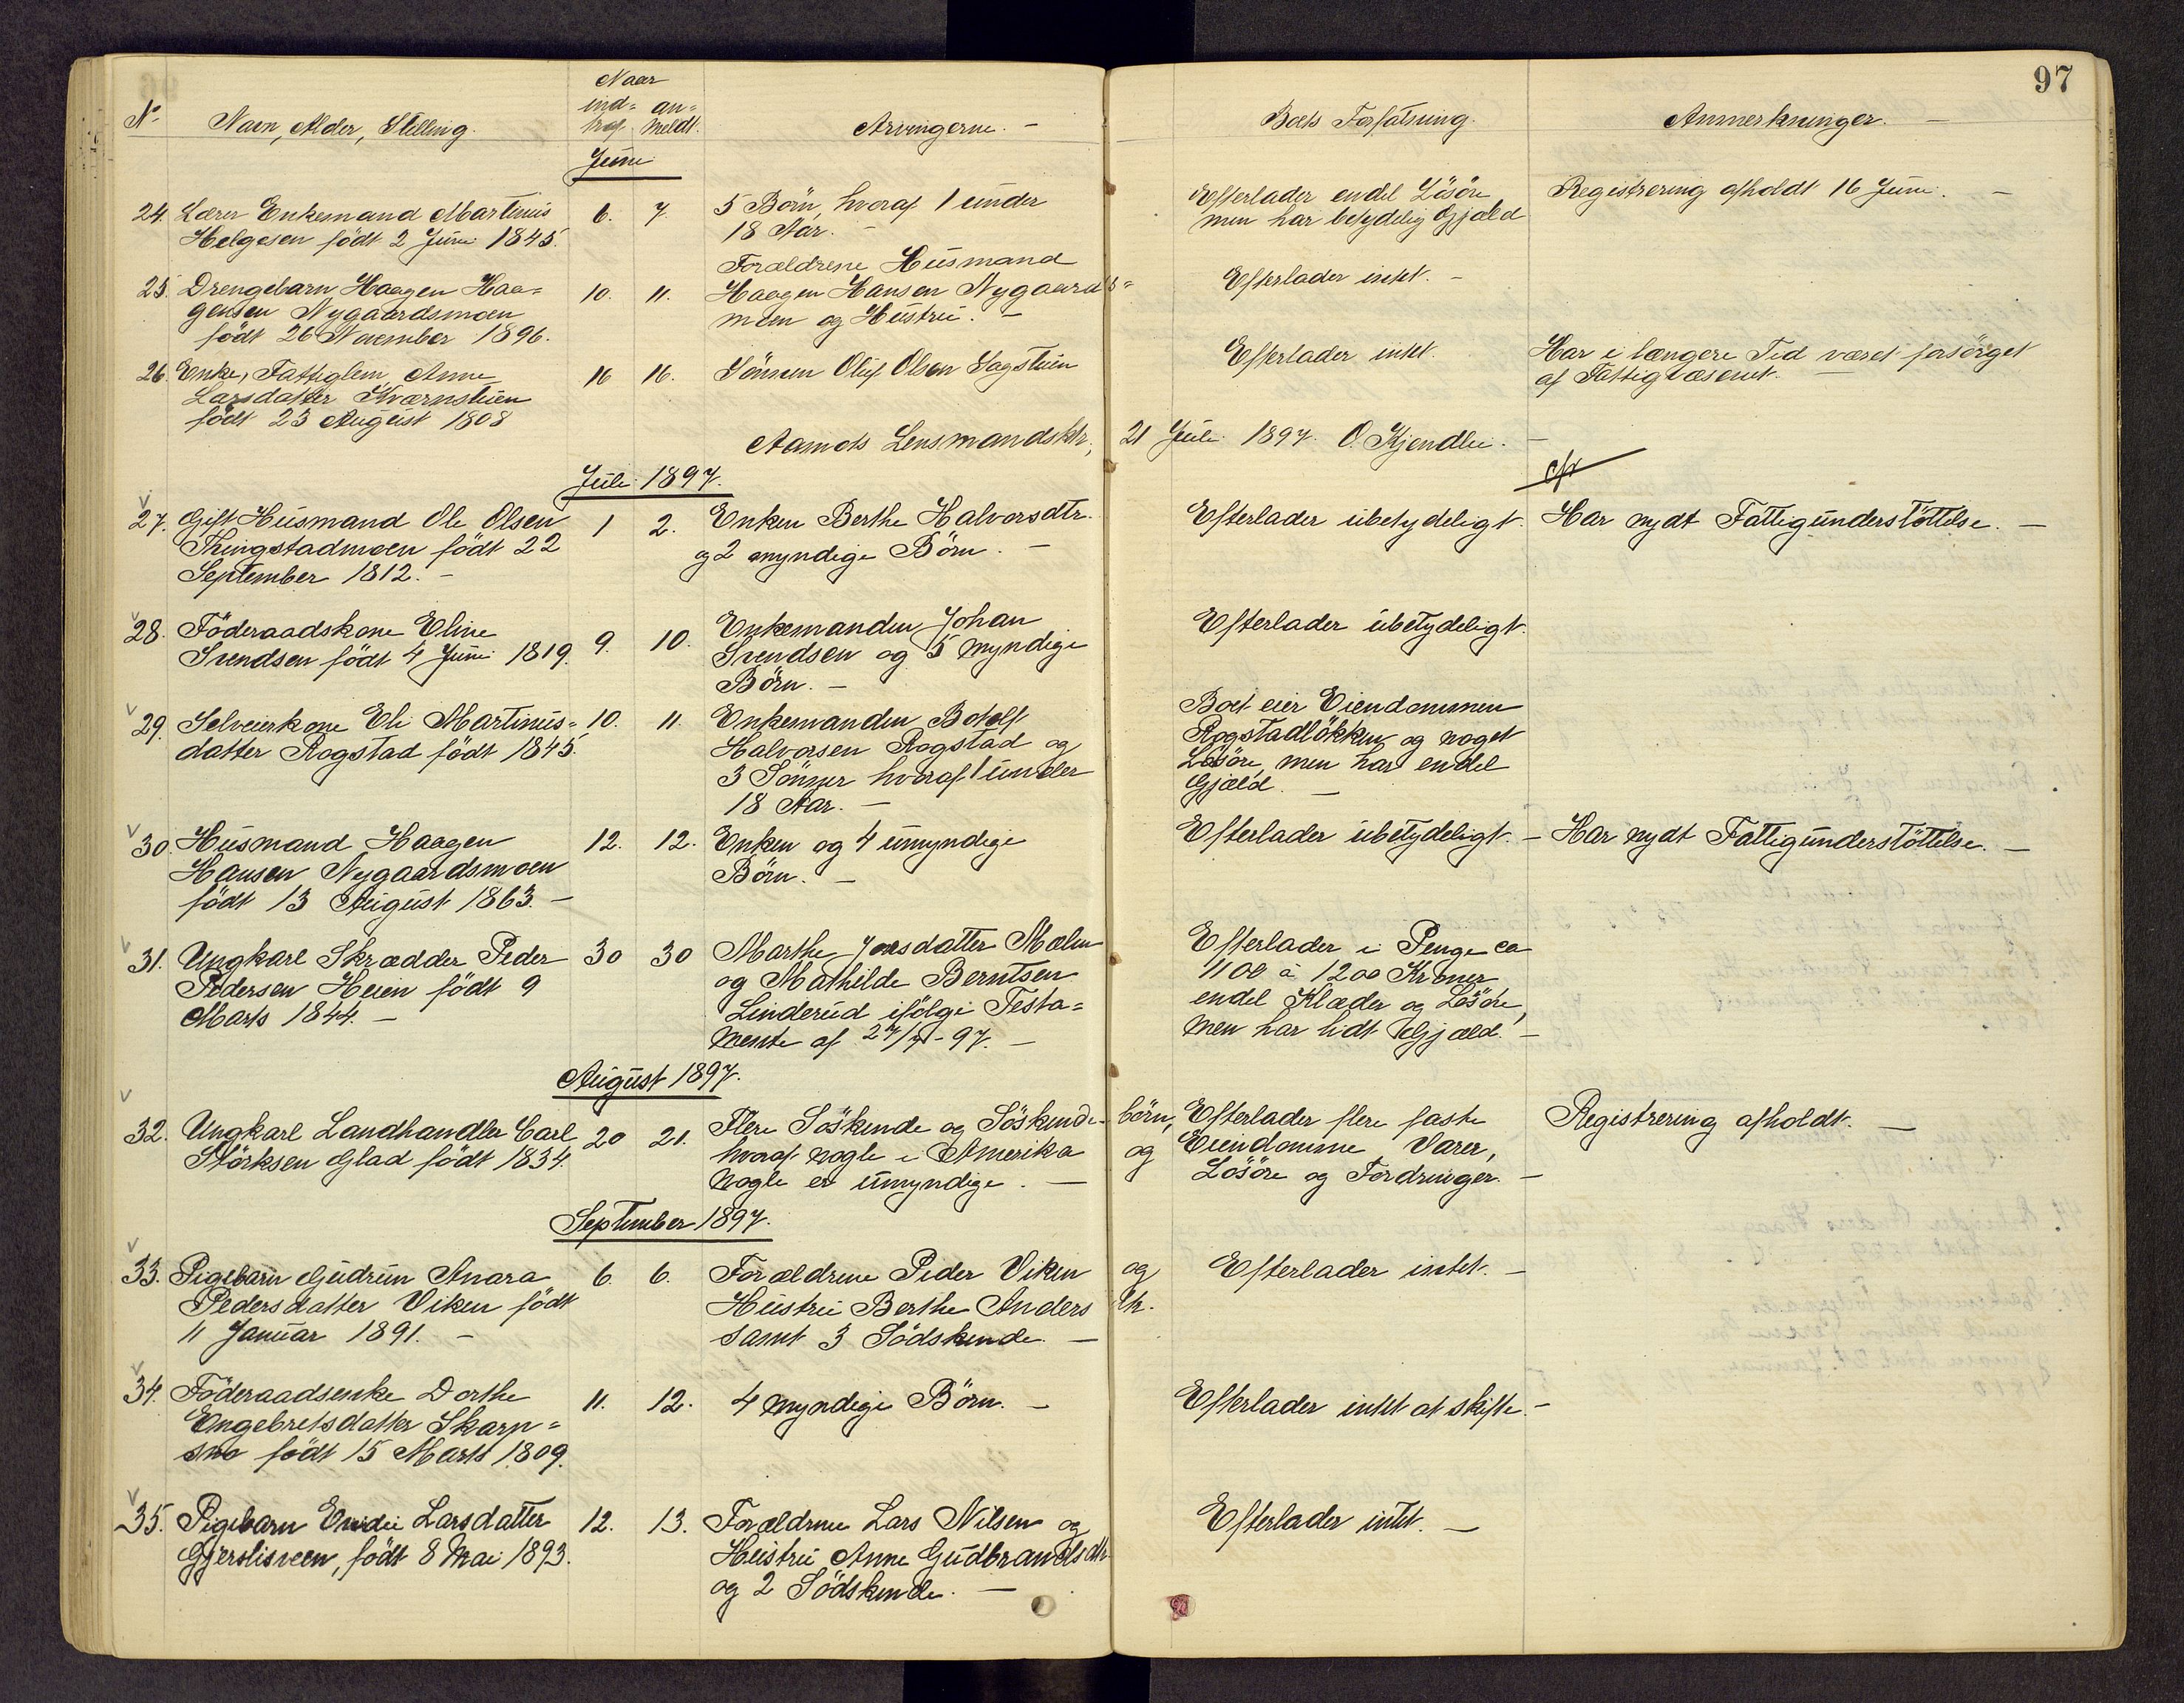 97
No. Navn, Alder, Stilling. Naar ind= traf. an= meldt. Arvingerne. — Boets Forfatning. Anmerkninger. —
Juni
24. Lærer Enkemand Martinus
Helgesen födt 2 Juni 1845.
6. 7.
5 Börn, hvoraf 1 under
18 Aar. —
Efterlader endel Lösöre
men har betydelig Gjæld
Registrering afholdt 16 Juni. —
25. Drengebarn Haagen Haa=
gensen Nygaardsmoen
födt 26 November 1896.
10. 11.
Forældrene Husmand
Haagen Hansen Nygaards=
moen og Hustru. —
Efterlader intet. —
26. Enke, Fattiglem, Anne
Larsdatter Kværnstuen
födt 23 August 1808
16 16.
Sönnen Oluf Olsen Sagstuen
Efterlader intet.
Har i længere Tid været forsörget
af Fattigvæsenet. —
Aamots Lensmandsktr., 21 Juli 1897. O. Kjendlie. —
Juli 1897.
27. Gift Husmand Ole Olsen
Thingstadmoen födt 22
September 1812. —
1 2.
Enken Berthe Halvorsdtr.
og 2 myndige Börn. —
Efterlader ubetydeligt.
Har nydt Fattigunderstöttelse. —
28. Föderaadskone Eline
Svendsen födt 4 Juni 1819.
9. 10.
Enkemanden Johan
Svendsen og 5 myndige
Börn. —
Efterlader ubetydeligt.
29. Selveierkone Eli Martinus=
datter Rogstad födt 1845.
10. 11.
Enkemanden Botolf
Halvorsen Rogstad og
3 Sönner hvoraf 1 under
18 Aar. —
Boet eier Eiendommen
Rogstadlökken og noget
Lösöre, men har endel
Gjæld. —
30. Husmand Haagen
Hansen Nygaardsmoen
födt 13 August 1863. —
12. 12.
Enken og 4 umyndige
Börn. —
Efterlader ubetydeligt. —
Har nydt Fattigunderstöttelse. —
31. Ungkarl Skrædder Peder
Pedersen Heien födt 9
Marts 1844. —
30 30
Marthe Jonsdatter Melm
og Mathilde Berntsen
Linderud ifölge Testa=
mente af 27/7-97. —
Efterlader i Penge ca
1100 à 1200 Kroner,
endel Klæder og Lösöre,
men har lidt Gjæld. —
August 1897.
32. Ungkarl Landhandler Carl
Störksen Glad födt 1834.
20 21.
Flere Söskende og Söskende-börn,
hvoraf nogle i Amerika og
nogle er umyndige. —
Efterlader flere faste
Eiendomme Varer,
Lösöre og Fordringer. —
Registrering afholdt. —
September 1897.
33. Pigebarn Gudrun Anara
Pedersdatter Viken födt
11 Januar 1891. —
6. 6.
Forældrene Peder Viken og
Hustru Berthe Anders dtr.
samt 3 Södskende. —
Efterlader intet. —
34. Föderaadsenke Dorthe
Engebretsdatter Skarp=
sno födt 15 Marts 1809.
11. 12.
4 myndige Börn. —
Efterlader intet at skifte. —
35. Pigebarn Larsdatter
födt 8 Mai 1893.
12. 13.
Forældrene Lars Nilsen og
Hustru Anne Gudbrandsdtr.
og 2 Södskende. —
Efterlader intet. —